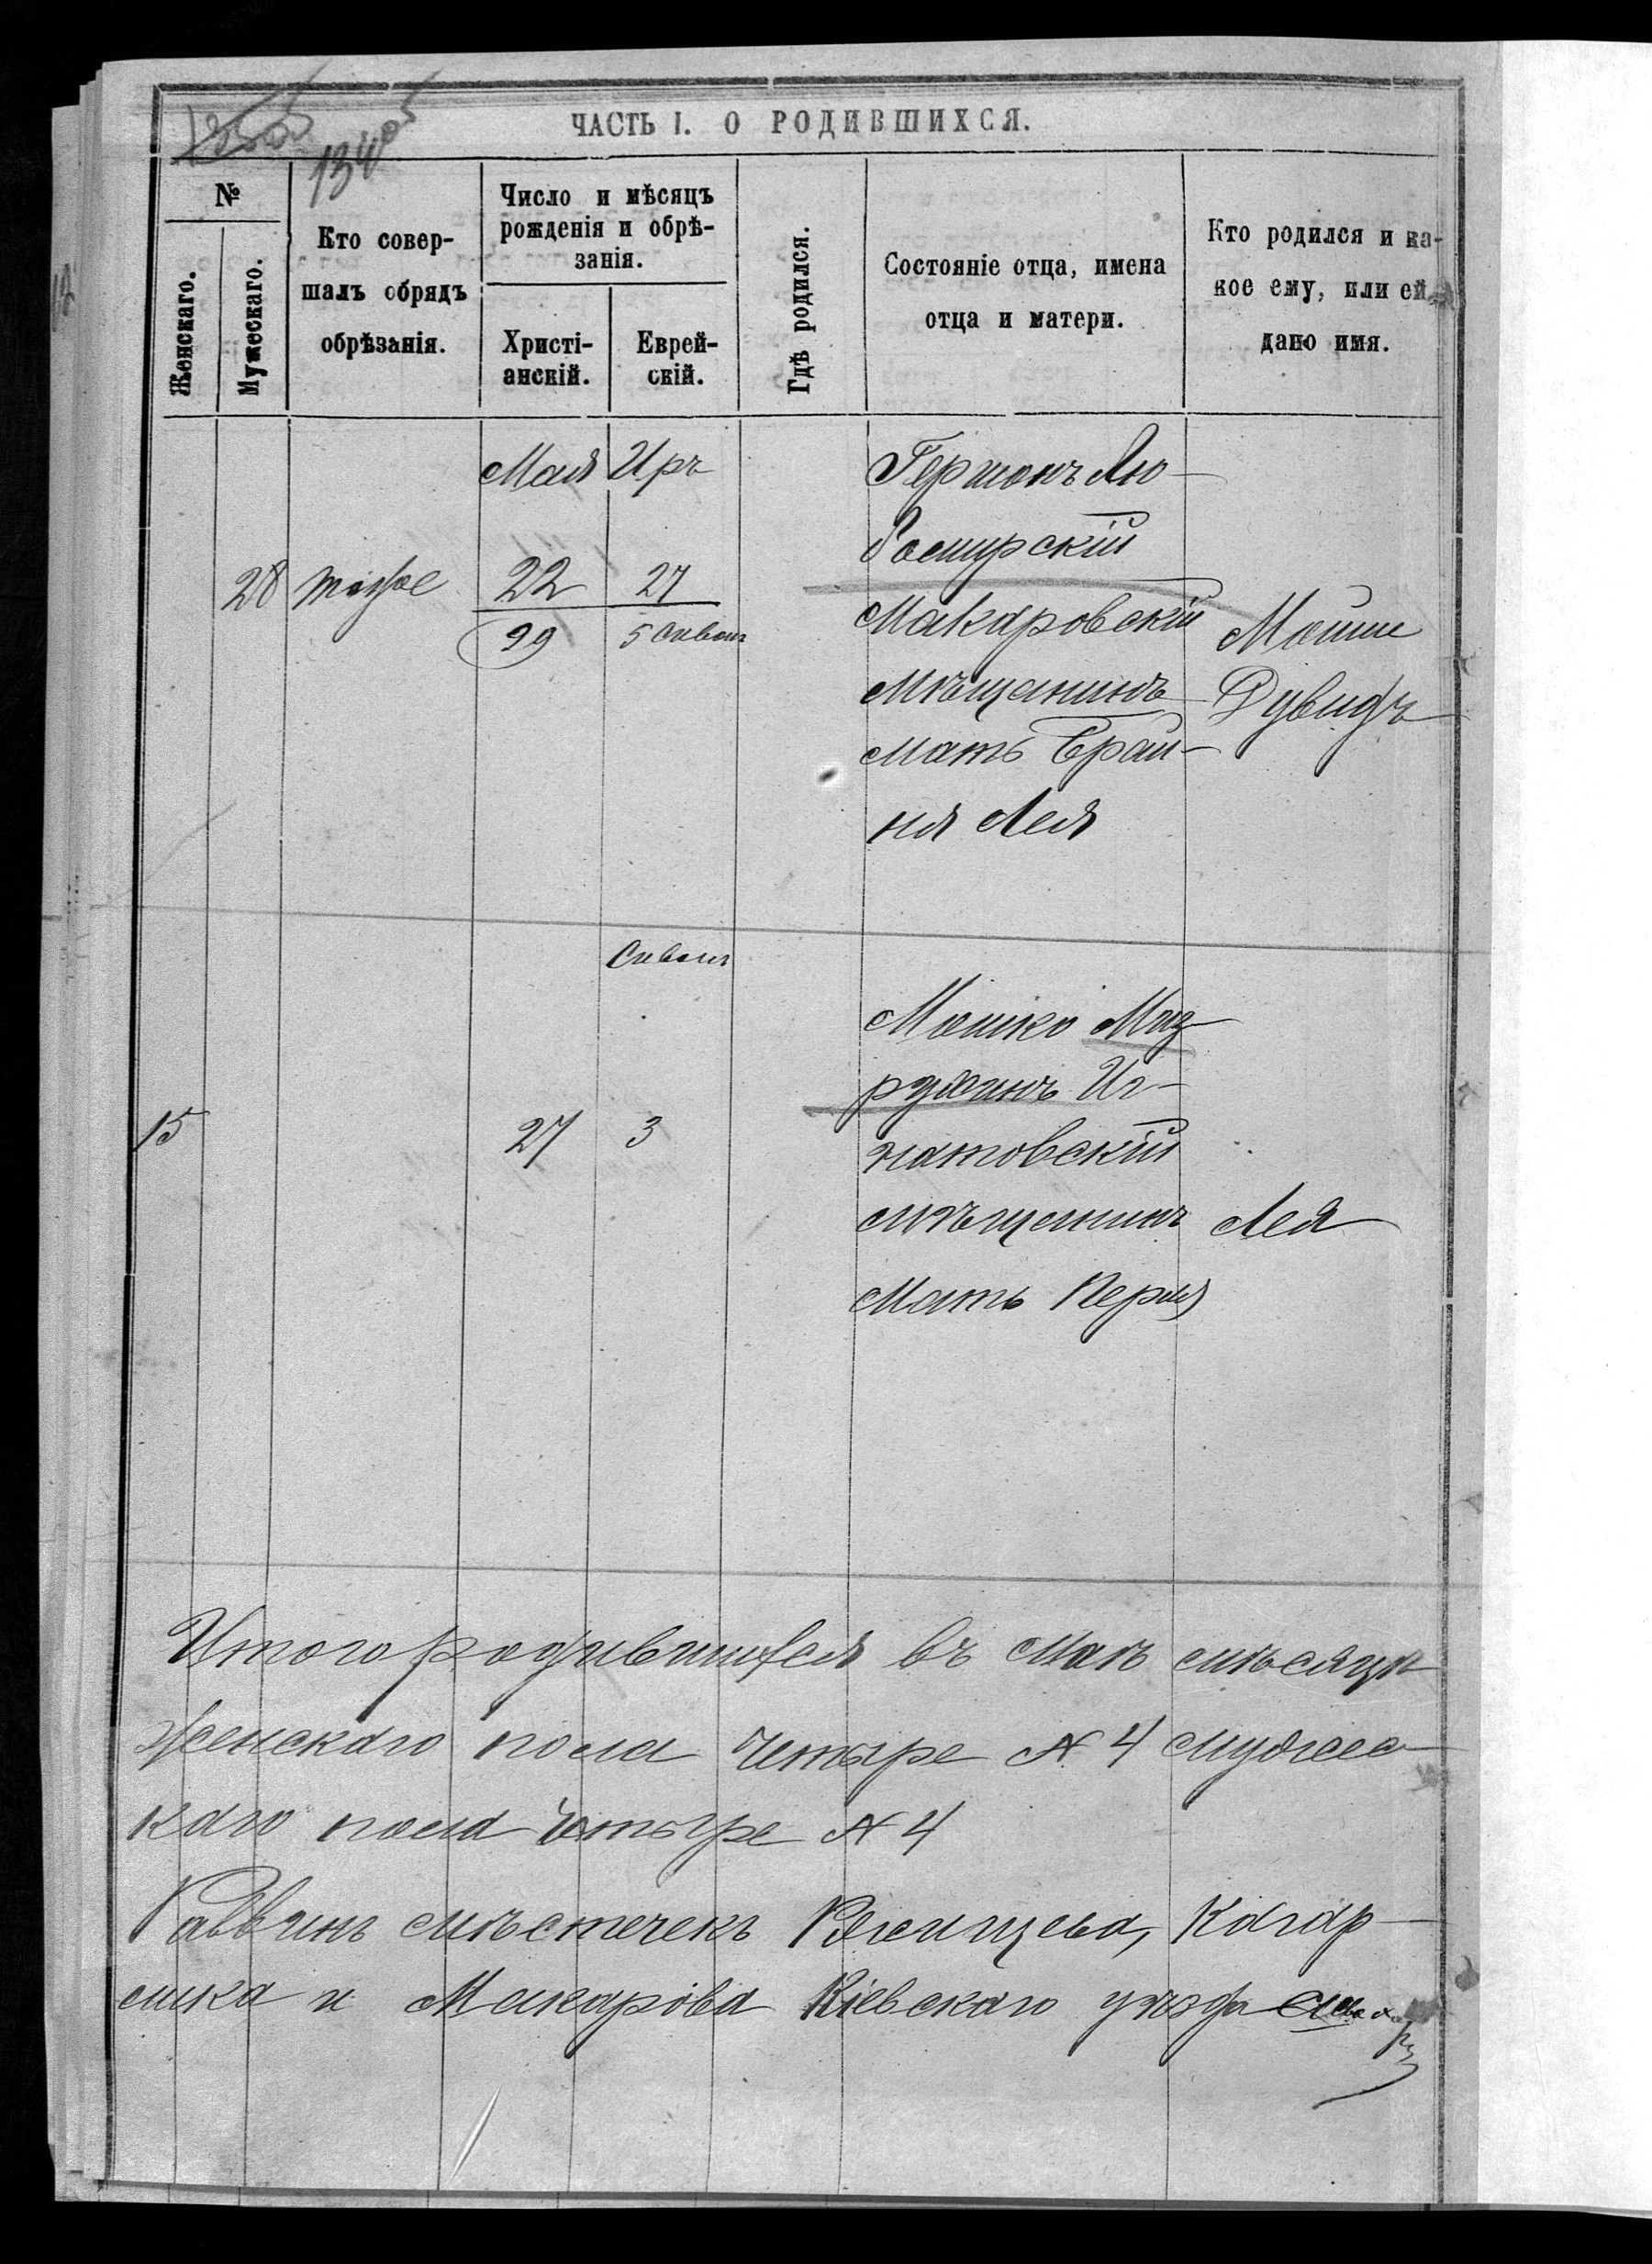 ЧАСТЬ I. О РОДИВШИХСЯ.
1340
№
Женскаго.
Мужескаго.
Кто совер-
шалъ обрядъ
обрѣзанія.
Число и мѣсяцъ
рожденія и обрѣ-
занія.
Христі-
анскій.
Еврей-
скій.
Гдѣ родился.
Состояніе отца, имена
отца и матери.
Кто родился и ка-
кое ему, или ей
дано имя.
Мая Иръ
28 22 27
29 5 Сиванъ
Гершонъ Лю-
Макаровскій
мѣщанинъ
мать Брай-
ня Лея
Мошие
Дувидъ
Сиванъ
15 27 3
Мошко Маз-
Иг-
натовскій
мѣщанинъ
Мать Перля
Лея
Итого родившихся въ Маѣ мѣсяцѣ
женскаго пола четыре № 4 мужес-
каго пола четыре № 4
Раввинъ мѣстечекъ Кагар-
лика и Макарова Кіевскаго уѣзда